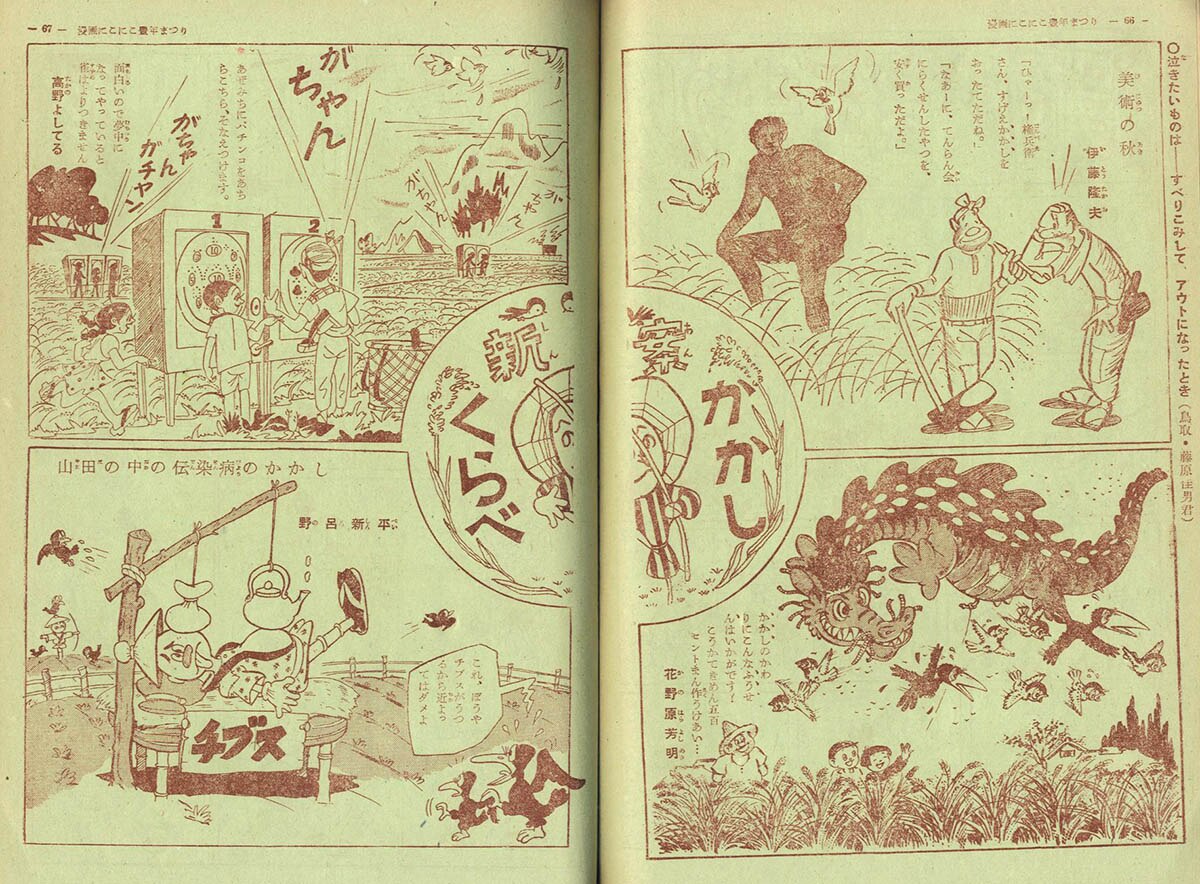 漫画にこにこ豊年まつり — 66 —
〇泣きたいものは——すべりこみして、アウトになったとき(鳥取・藤原
美術の秋
伊藤隆夫
「ひゃーっ!権兵衛
さん、すげえかかしを
おったてただね。」
「なあーに、てんらん会
にらくせんしたやつを、
安く買っただよ。」
新案
かかし
くらべ
かかしのかわ
りにこんなふうせ
んはいかがです!
花野原芳明
— 67 — 漫画にこにこ豊年まつり
がちゃん
あぜみちにパチンコをあち
らこちら、そなえつけます。
がちゃん
ガチャン
がちゃん
がちゃん
面白いので夢中に
なってやっていると
雀はよりつきません
高野よしてる
1
2
10
10
山田の中の伝染病のかかし
野呂新平
これ、ぼうや
チブスがうつ
るから近よっ
てはダメよ
チブス